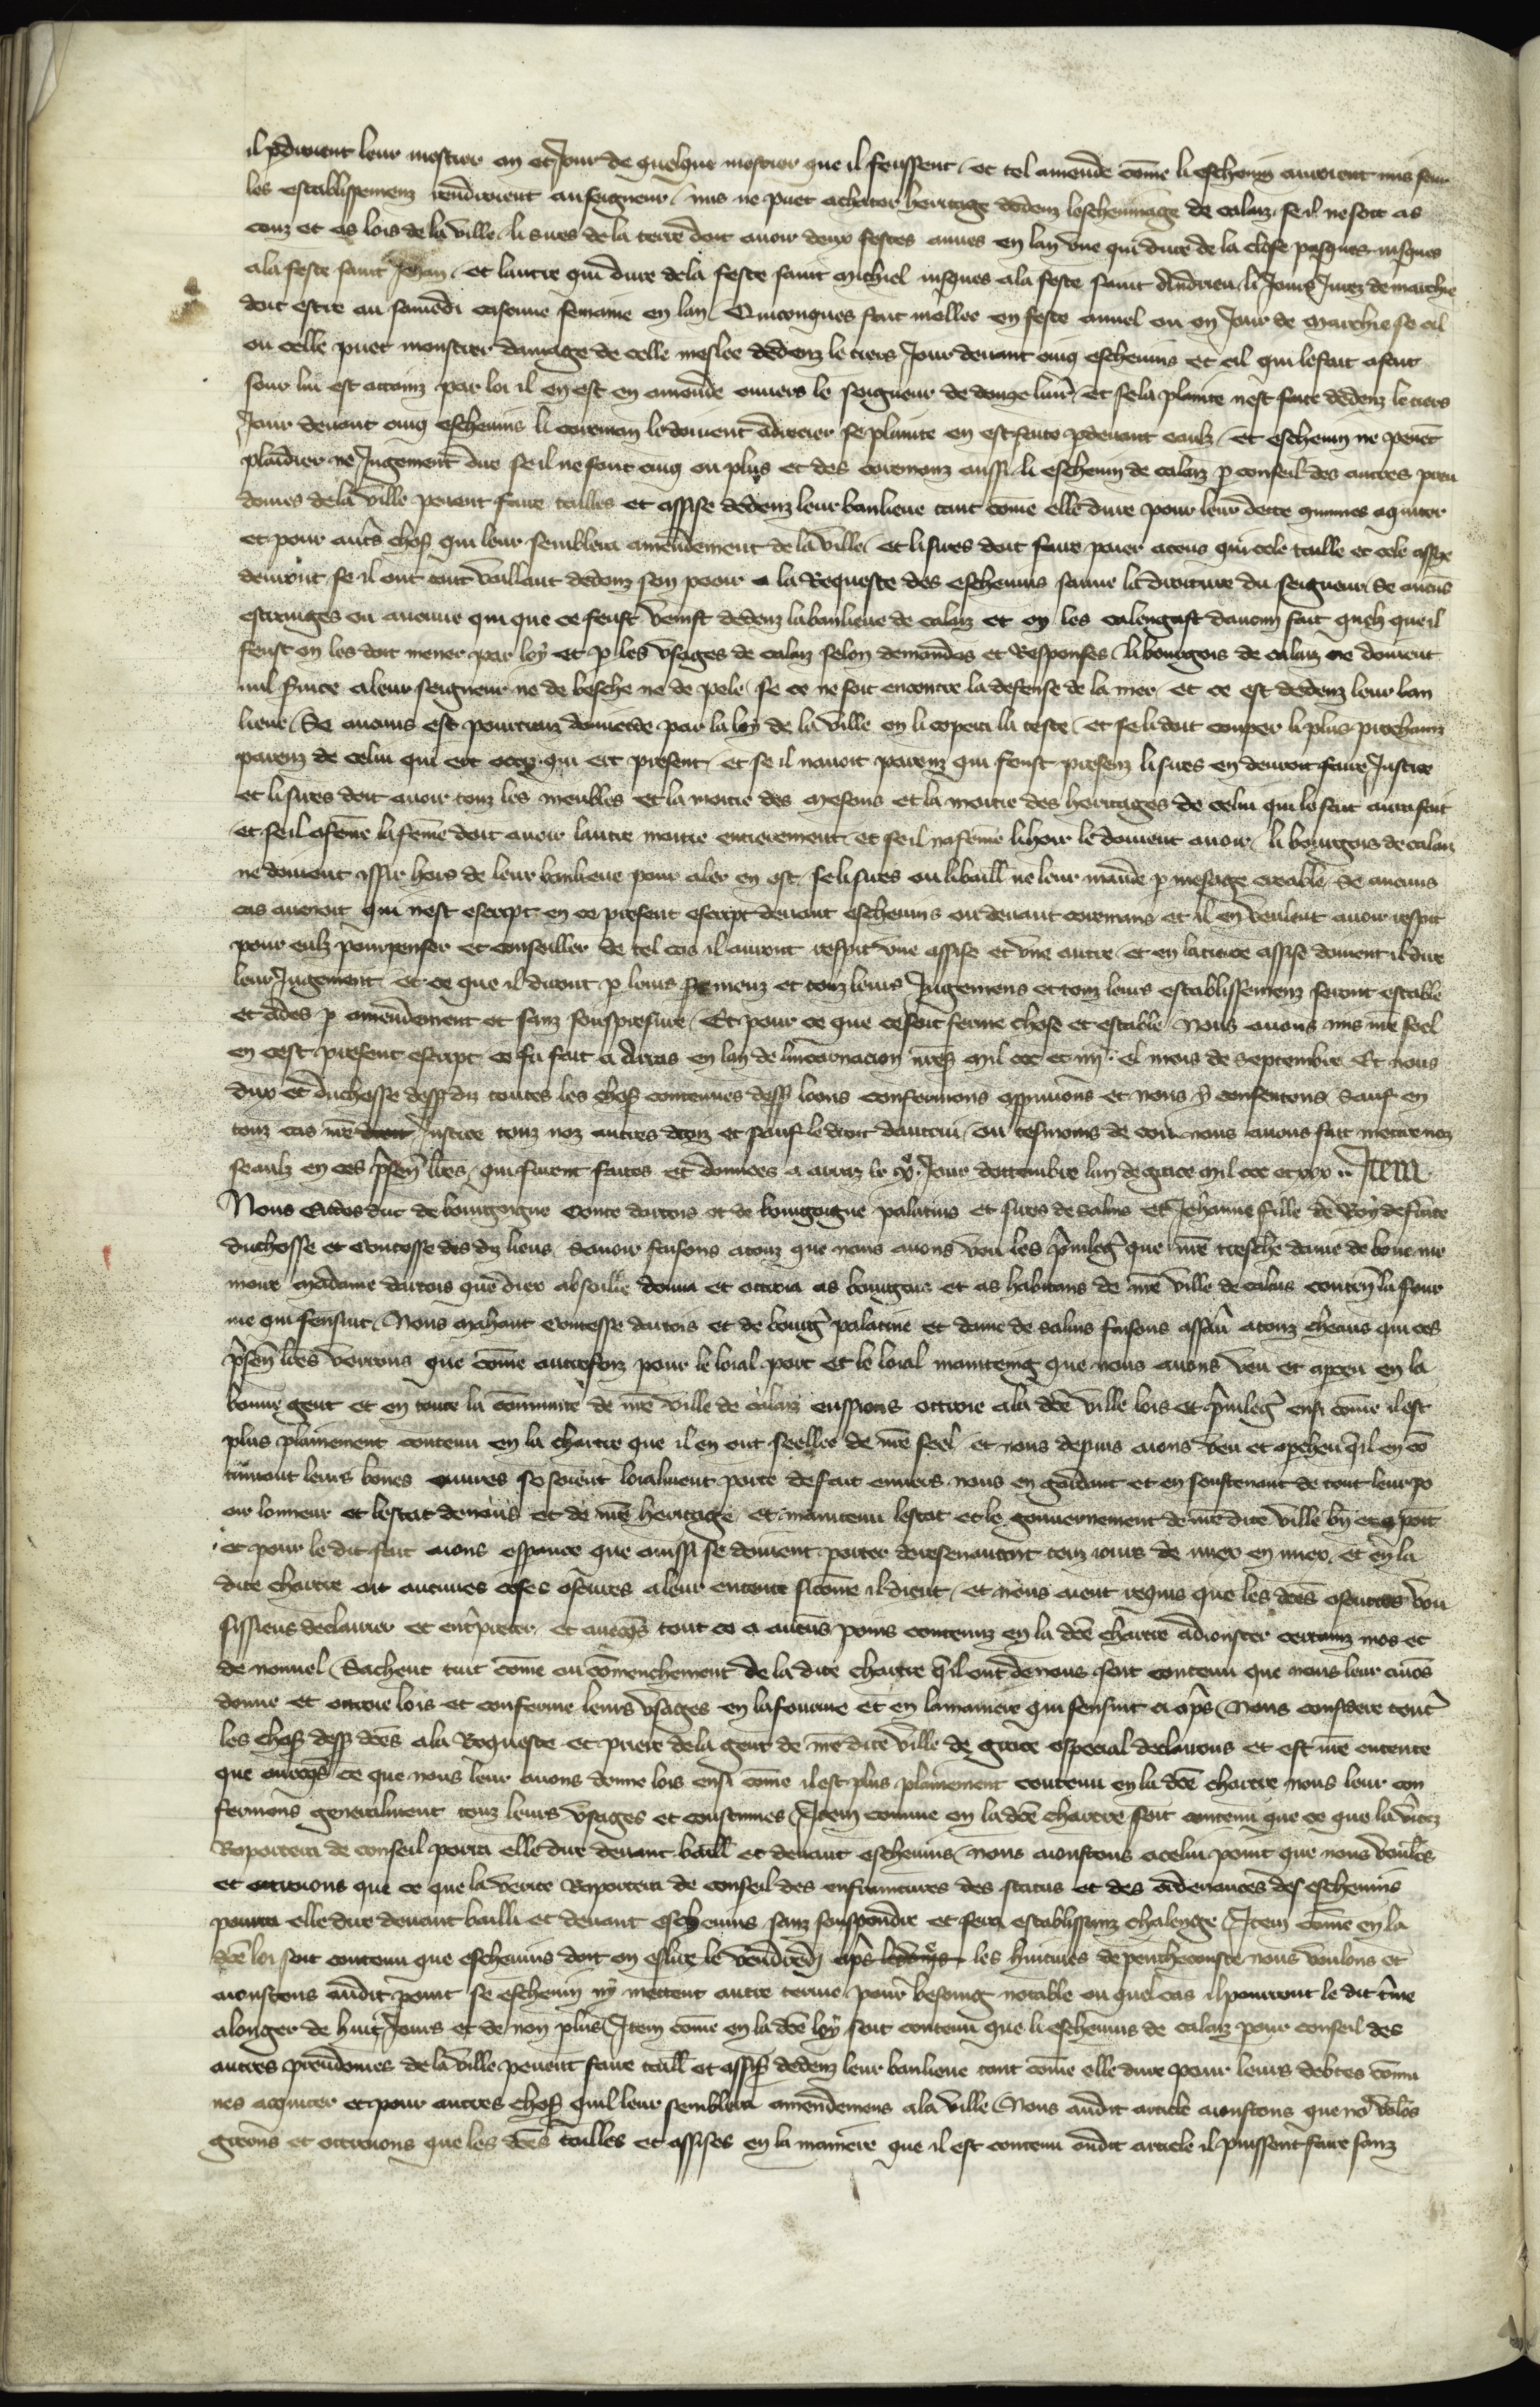 il pdroient leur mestier an et Jour de quelque mestier que il feussent / et tel amende cõme li eschevin auroient mis seur
les establissemenz rendroient au seigneur / nus ne puet achater heritage dedenz leschevinage de calaiz se il ne soit as
couz et as lois de la ville / li sires de la terre doit avoir deux festes anues en lan vne qui dure de la close pasques iusques
a la feste saint Jehan / et lautre qui dure de la feste saint michiel iusques a la feste saint Andrieu / li Jours Jurez de marchie
doit estre au samedi chascune semaine en lan / Quicongues fait mellee en feste annel ou en Jour de marchie se cil
ou celle puet monstrer damage de celle meslee dedenz le tiers Jour devant cinq eschevins et cil qui le fait a fait
sour lui est attainz par loi il en est en amende envers le seigneur de douze livr / Et se la plainte nest faite dedenz le tiers
Jour devant cinq eschevins li coreman le doivent adrecier se plainte en est faite pdevant eaulz / Et eschevin ne peuet
plaidier ne Jugement dire se il ne sont cinq ou plus et des coremanz aussi / li eschevin de calaiz p conseil des autres preu
domes de la ville peuent faire tailles et assise dedenz leur banlieue tant cõme elle dure pour leur dette qmunes aquiter
et pour auts chos qui leur semblera amendement de la ville / et li sires doit faire paier a ceus qui cele taille et cele assise
devront se il ont tant vaillant dedenz son pooir a la Requeste des eschevins sauve la droiture du seigneur / Se aucũs
estranges ou aucune qui que ce feust venist dedenz la banlieue de calaiz et on les calengast daucun fait quelz que il
feust on les doit mener par loy et p les vsages de calaiz selon demandes et Responses / li bourgois de calaiz ne doivent
nul svice a leur seigneur ne de besche ne de pele se ce ne soit encontre la defense de la mer / et ce est dedenz leur ban
lieue / Se aucuns est pourtrait domecide par la loy de la ville on li copera la teste / et se li doit couper li plus prochains
parenz de celui qui ert occis qui ert present / et se il navoit parenz qui feust presenz li sires en devroit faire Justice
et li sires doit avoir touz les meubles et la moitie des mesons et la moitie des heritages de celui qui le fait aura fait
et se il a feme la feme doit avoir lautre moitie entierement / et se il na feme li hoir le doivent avoir / li bourgois de calaiz
ne doivent issir hors de leur banlieue pour aler en ost se li sires ou li baill ne leur mande p mesage creable / Se aucuns
cas avenoit qui nest escript en ce present escript devant eschevins ou devant coremans et il en veulent avoir respit
pour eulz pourpenser et conseiller de tel cas il auront respit vne assise et vne autre / et en la tierce assise doivent il dire
leur Jugement / et ce que il diront p leurs seremenz et touz leurs Jugemens et touz leurs establissemenz seront estable
et tenus p amendement et sanz souspresure / Et pour ce que ce soit ferme chose et estable nous avons mis nre seel
en cest present escript ce fu fait a Arras en lan de lincarnacion nres mil ccc et iiij el mois de septembre Et nous
dux et duchesse dess diz toutes les chos contenues dess loons confermons appruvons et nous y consentons / Sauf en
touz cas nre droit Justice touz noz autres droiz et sauf le droit dautrui / En tesmoins de ce nous avons fait mettre noz
seaulz en ces psen lres / qui furent faites et donnees a arraz le xxe Jour dottembre lan de grace mil ccc et xxx .. Item
Nous Eudes duc de bourgoigne conte dartois et de bourgoigne palatins et sires de salins Et Jehanne fille de Roy de france
duchesse et contesse des diz lieus savoir faisons a touz que nous avons veu les privileg que nre treschiere dame de bone me
moire madame dartois que diex absoille donna et ottroia as bourgois et as habitans de nre ville de calais contenãt la four
me qui sensuit / Nous mahaut contesse dartois et de bourg palatine et dame de salins faisons assav a touz cheaus qui ces
psen lres verrons que cõme autrefoiz pour le loial port et le loial maintieng que nous avons veu et apceu en la
bonne gent et en toute la cõmunite de nre ville de calaiz eussions ottroie a la dce ville lois et privileg ensi cõme il est
plus plainement contenu en la chartre que il en ont seellee de nre seel / et nous depuis avons veu et apcheu qil en cõ
tinuant leurs bones euvres se soient loialment porte de fait envers nous en gardant et en soustenant de tout leur po
oir lonneur et lestat de nous et de nre heritage / et maintenu lestat et le gouvernement de nre dite ville bn et apoit
et pour le dit fait aions espance que aussi se doivent porter doresenavant touz iours de miex en miex / et en la
dite chartre ait aucunes choses oscures a leur entente si cõme il dient / et nous aient requis que les dces oscurtes vou
sissiens declairier et entpreter / et avecqs tout ce a aucus poins contenuz en la dce chartre adiouster certainz mos et
de nouvel / Sachent tuit cõme ou cõmenchement de la dite chartre qil ont de nous soit contenu que nous leur avõs
donne et ottroie lois et conferme leurs vsages en la fourme et en la maniere qui sensuit ci aps / Nous considere tout
les chos dess dces a la Requeste et priere de la gent de nre dite ville de grace especial declairons et est nre entente
que avecqs ce que nous leur avons donne lois ensi cõme il est plus plainement contenu en la dce chartre nous leur con
fermons generalment touz leurs vsages et coustumes / Item comme en la dce chartre soit contenu que ce que la vitez
Raportera de conseil porra elle dire devant baill et devant eschevins / nous aioustons a celui point que nous voulõs
et ottroions que ce que la verite Raportera de conseil des enfraintures des status et des ordenances des eschevins
pourra elle dire devant bailli et devant eschevins sanz souspendre et sera establissanz chalenge / Item cõme en la
dce loi soit contenu que eschevins doit on eslire le vendredi aps les huitieves de penthecouste nous voulons et
aioustons audit point se eschevin ny mettent autre terme pour besoing notable ou quel cas il pourront le dit tme
alonger de huit Jours et de non plus / Item cõme en la dce loy soit contenu que li eschevins de calaiz pour conseil des
autres preudomes de la ville peuent faire taill et assis dedenz leur banlieue tant cõme elle dure pour leurs debtes cõmu
nes aquiter et pour autres chos quil leur semblera amendemens a la ville / Nous audit article aioustons que no volõs
greons et ottroions que les dces tailles et assises en la maniere que il est contenu oudit article il puissent faire sanz